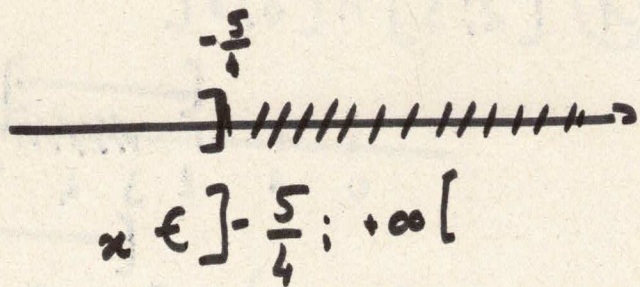 -5/4
]
x ∈ ]-5/4; +∞[